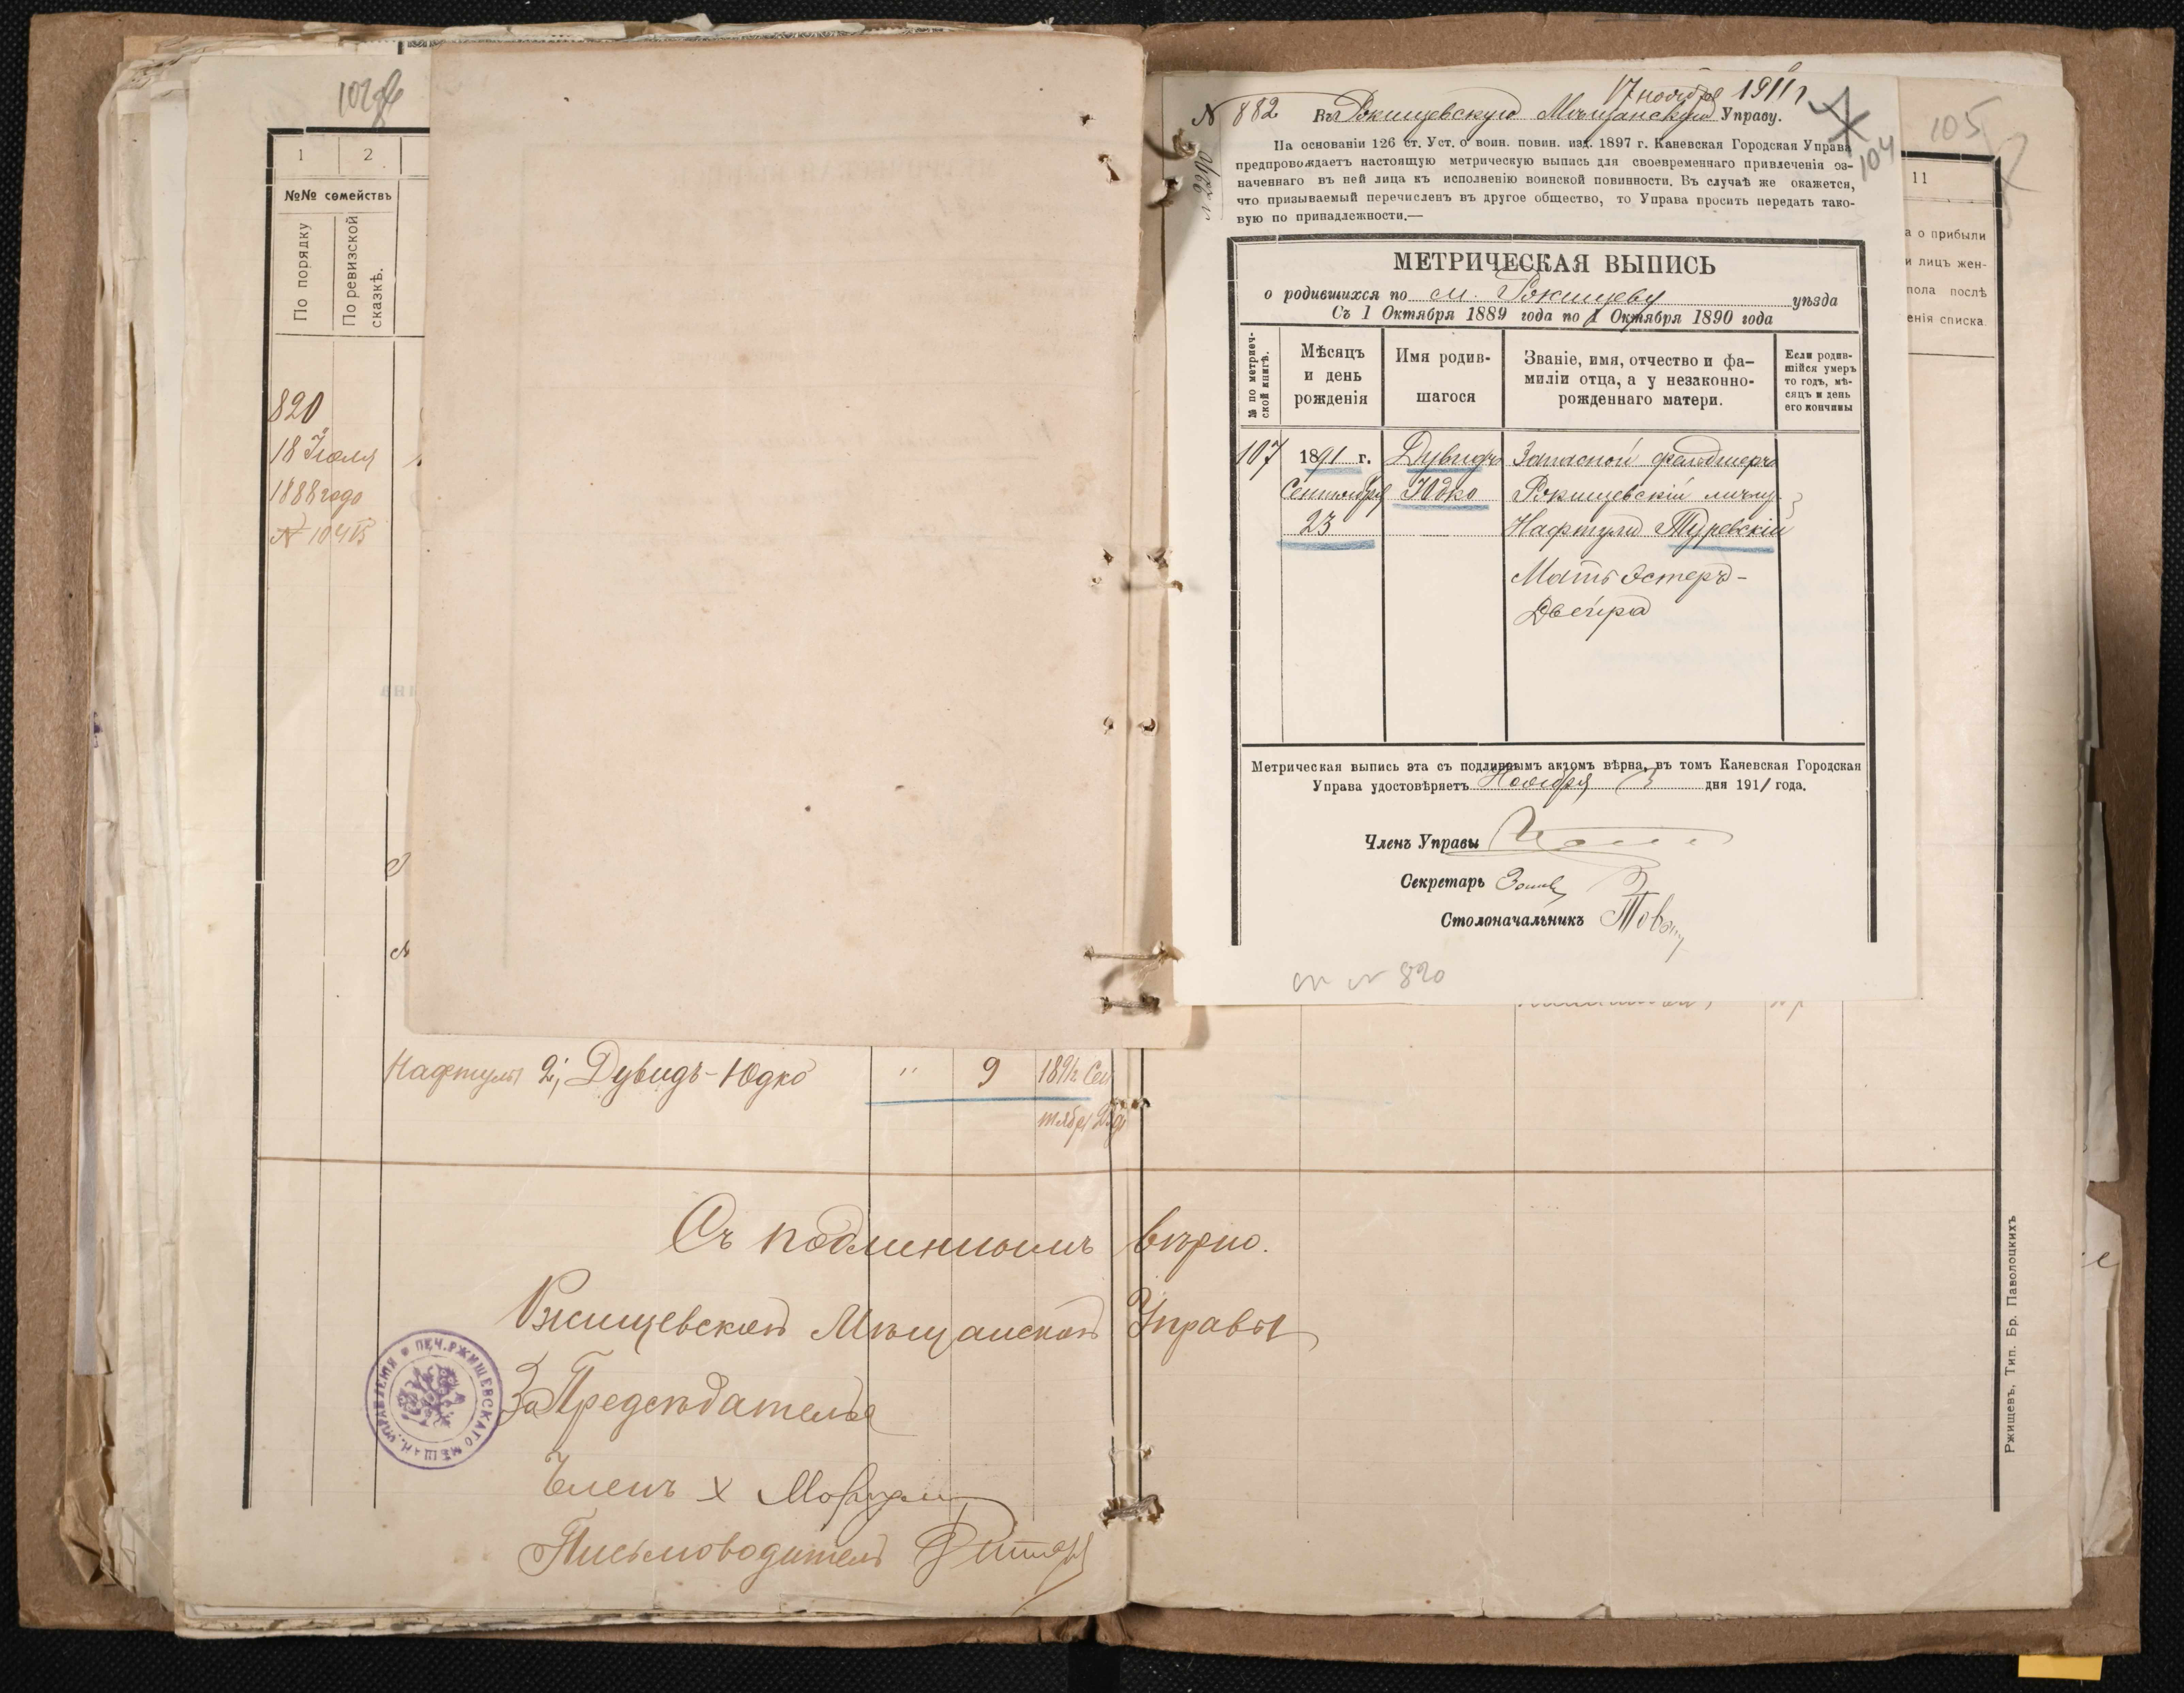 1
2
№№ семействъ
По порядку
По ревизской
сказкѣ.
820
18 Іюля
1888 года
Нафтулы 2; Дувидъ-Юдко " 9 1891 г. Сен
тября 23
Съ подлиннымъ вѣрно.
Ржищевской Мѣщанской Управы
За Предсѣдателя
Членъ х
Письмоводитель
ПЕЧ. РЖИЩЕВСКАГО МѢЩАН. УПРАВЛЕНІЯ
17 ноября 1911 г
№ 882 Въ Ржищевскую Мѣщанскую Управу.
На основаніи 126 ст. Уст. о воин. повин. изд. 1897 г. Каневская Городская Управа
предпровождаетъ настоящую метрическую выпись для своевременнаго привлеченія оз-
наченнаго въ ней лица къ исполненію воинской повинности. Въ случаѣ же окажется,
что призываемый перечисленъ въ другое общество, то Управа проситъ передать тако-
вую по принадлежности.—
104
105
МЕТРИЧЕСКАЯ ВЫПИСЬ
о родившихся по м. Ржищеву уѣзда
Съ 1 Октября 1889 года по 1 Октября 1890 года
№ по метриче-
ской книгѣ.
Мѣсяцъ
и день
рожденія
Имя родив-
шагося
Званіе, имя, отчество и фа-
миліи отца, а у незаконно-
рожденнаго матери.
Если родив-
шійся умеръ
то годъ, мѣ-
сяцъ и день
его кончины
107 1891 г. Дувидъ Запасной фельдшеръ
Сентября Юдко Ржищевскій
23 Нафтула Туревскій
Мать Эстеръ-
Двейра
Метрическая выпись эта съ подлиннымъ актомъ вѣрна, въ томъ Каневская Городская
Управа удостовѣряетъ Ноября 3 дня 1911 года.
Членъ Управы
Секретарь
Столоначальникъ
№ 820
11
а о прибыли
и лицъ жен-
пола послѣ
енія списка
Ржищевъ, Тип. Бр. Паволоцкихъ